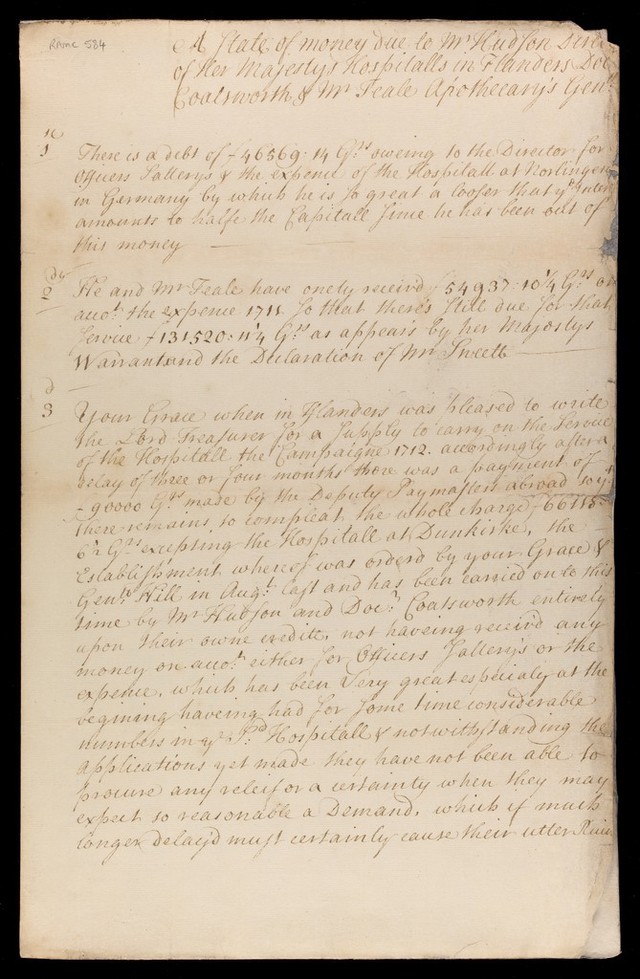 RAMC 584
A State of money due to Mr Hudson Direc
of Her Majestys Hospitalls in Flanders Doc
Coatsworth & Mr Teale Apothecarys Genll
1st
There is a debt of f46569:14 Grs owing to the Director for
Officers Sallerys & the expence of the Hospitall at Norlingen
in Germany by which he is so great a looser that ye Inter
amounts to halfe the Capitall sime he has been out of
this money
2d
He and Mr Teale have onely receivd f54937:10¼ Grs on
acco.t the expence 1711 so that there's still due for that
Service f131520:11¼ Grs as appears by her Majestys
Warrant and the Declaration of Mr Sweett
3d
Your Grace when in Flanders was pleased to write
the Lord Treasurer for a Supply to carry on the Service
of the Hospitall the Campaigne 1712. accordingly after a
delay of three or four months there was a payment of
90000 Grs made by the Deputy Paymasters abroad soy.t
there remains to compleat the whole charge f66115:
6½ Grs excepting the Hospitall at Dunkirke, the
Establishment whereof was orderd by your Grace &
Genll Hill in Augt last and has been carried on to this
time by Mr Hudson and Docr Coatsworth entirely
upon their owne credite, not haveing receivd any
money on acco.t either for Officers Sallerys or the
expence, which has been very great especialy at the
begining haveing had for some time considerable
numbers in ye Sd Hospitall & notwithstanding the
applications yet made they have not been able to
procure any releif or a certainty when they may
expect so reasonable a Demand, which if much
longer delay'd must certainly cause their utter Ruin